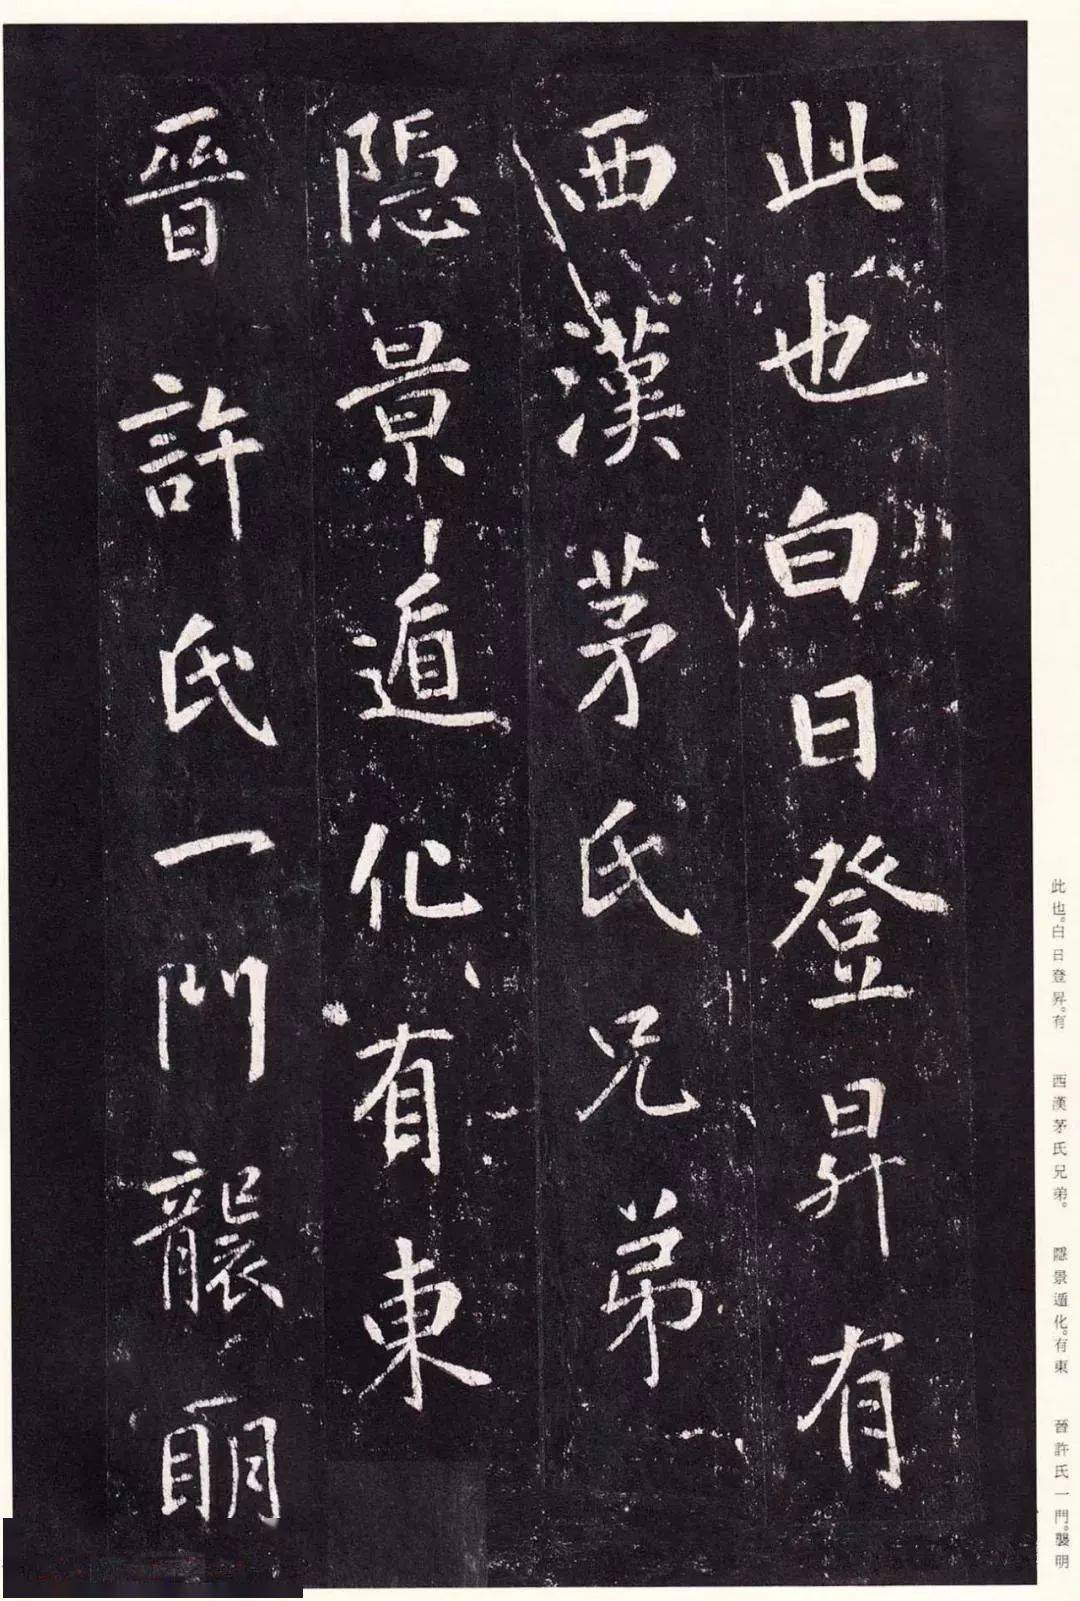 此也白日登昇有
西漢茅氏兄弟
隱景遁化有東
晉許氏一門襲明
此也。白日登昇。有　西漢茅氏兄弟。　隱景遁化。有東　晉許氏一門。襲明